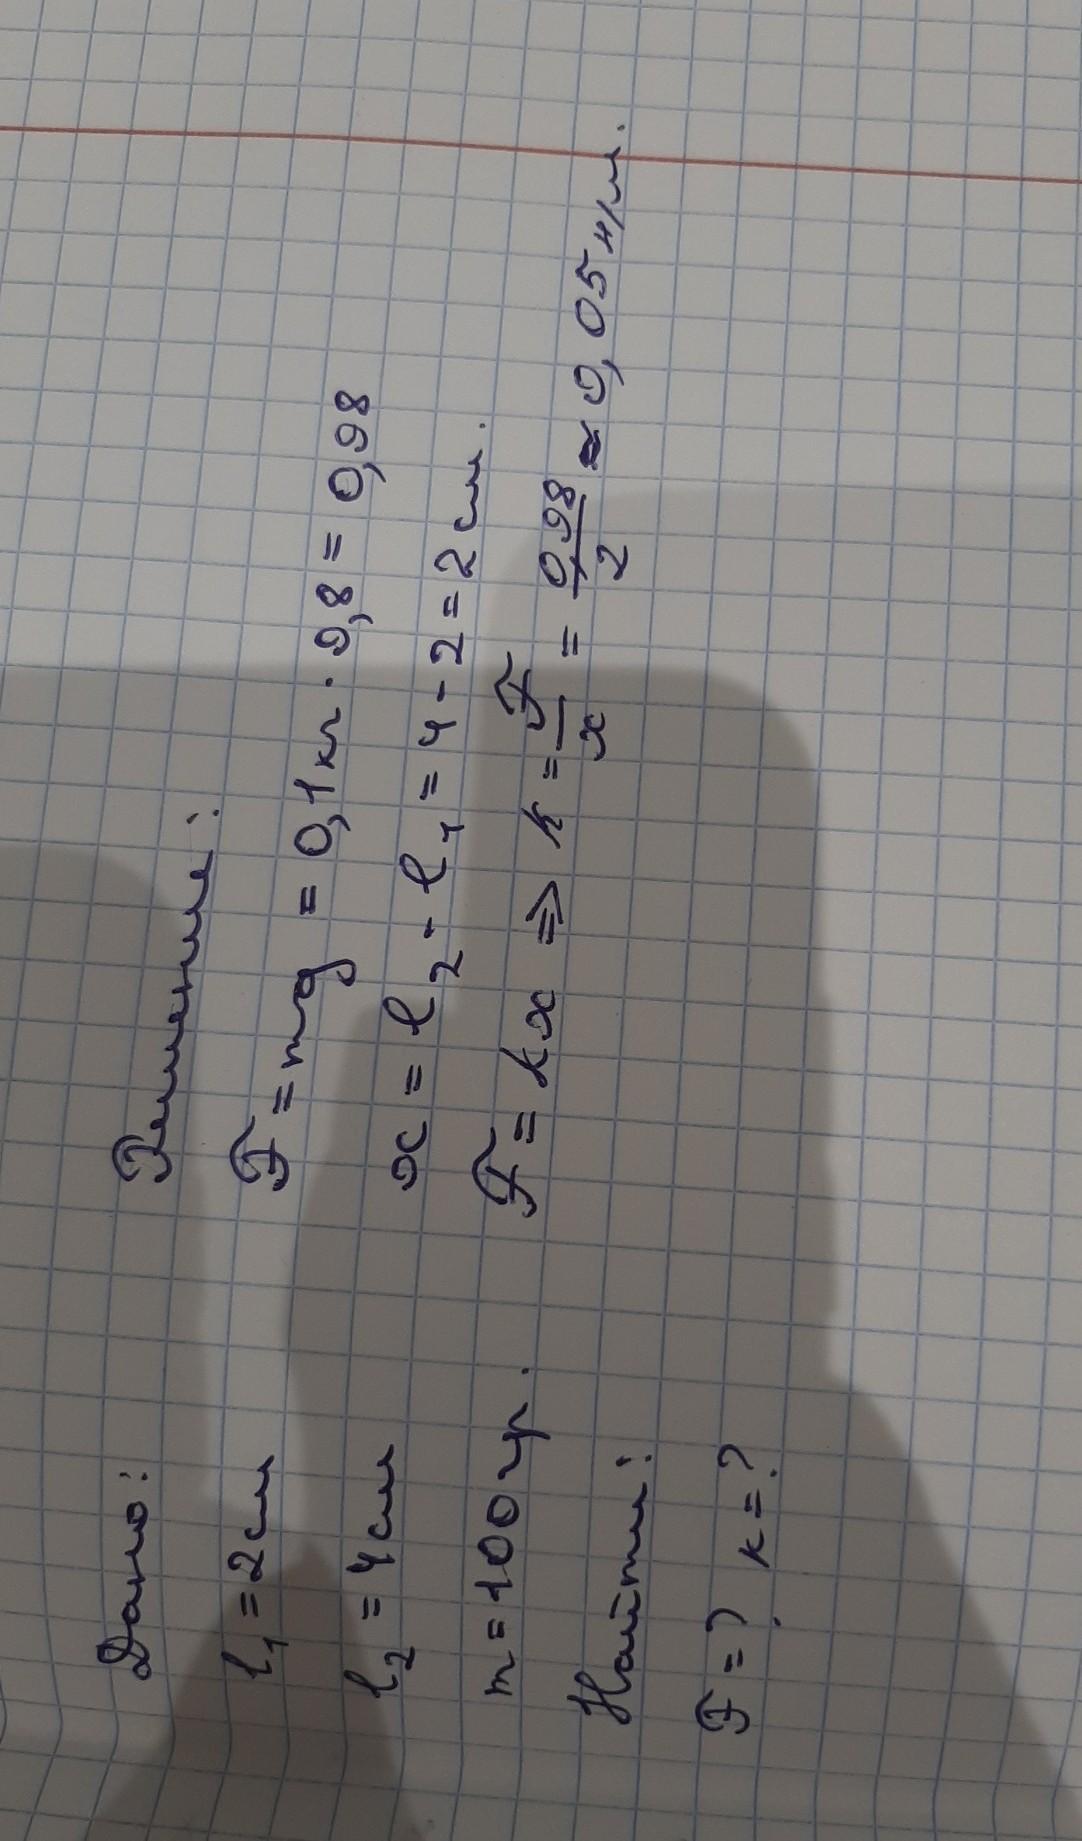 Дано:
l₁ = 2 см
l₂ = 4 см
m = 100 гр.
Найти:
F = ? k = ?
Решение:
F = mg = 0,1 кг · 9,8 = 0,98
x = l₂ - l₁ = 4 - 2 = 2 см.
F = kx ⇒ k = F/x = 0,98/2 ≈ 0,05 н/м.